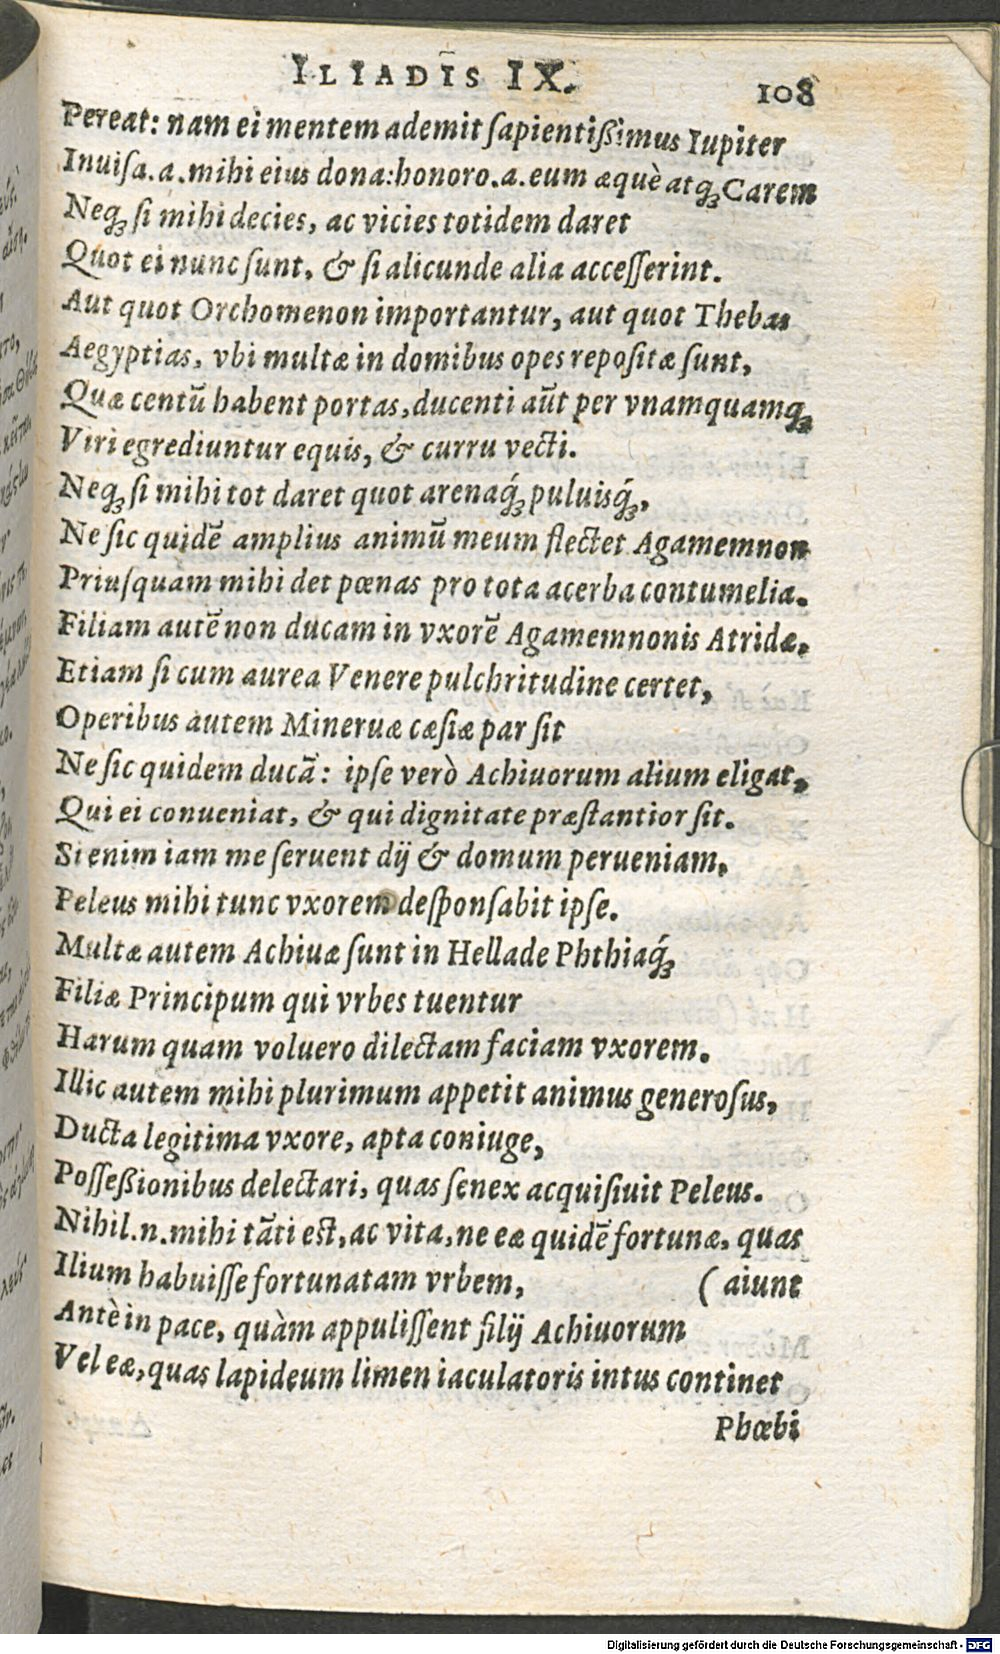 ILIADIS IX. 108
Pereat: nam ei mentem ademit ſapientißimus Iupiter
Inuiſa.a.mihi eius dona:honoro.a.eum æquè atꝗ Carem
Neꝗ ſi mihi decies, ac vicies totidem daret
Quot ei nunc ſunt, & ſi alicunde alia acceſſerint.
Aut quot Orchomenon importantur, aut quot Thebas
Aegyptias, vbi multæ in domibus opes repoſitæ ſunt,
Quæ centũ habent portas, ducenti aũt per vnamquamꝗ
Viri egrediuntur equis, & curru vecti.
Neꝗ ſi mihi tot daret quot arenaꝗ́ puluisꝗ́,
Ne ſic quidẽ amplius animũ meum flectet Agamemnon
Priuſquam mihi det pœnas pro tota acerba contumelia.
Filiam autẽ non ducam in vxorẽ Agamemnonis Atridæ,
Etiam ſi cum aurea Venere pulchritudine certet,
Operibus autem Mineruæ cæſiæ par ſit
Ne ſic quidem ducã: ipſe verò Achiuorum alium eligat,
Qui ei conueniat, & qui dignitate præſtantior ſit.
Si enim iam me ſeruent dij & domum perueniam,
Peleus mihi tunc vxorem deſponſabit ipſe.
Multæ autem Achiuæ ſunt in Hellade Phthiaꝗ́
Filiæ Principum qui vrbes tuentur
Harum quam voluero dilectam faciam vxorem.
Illic autem mihi plurimum appetit animus generoſus,
Ducta legitima vxore, apta coniuge,
Poſſeßionibus delectari, quas ſenex acquiſiuit Peleus.
Nihil.n.mihi tãti eſt, ac vita, ne eæ quidẽ fortunæ, quas
Ilium habuiſſe fortunatam vrbem, (aiunt
Antè in pace, quàm appuliſſent filij Achiuorum
Vel eæ, quas lapideum limen iaculatoris intus continet
Phœbi
Digitalisierung gefördert durch die Deutsche Forschungsgemeinschaft - DFG